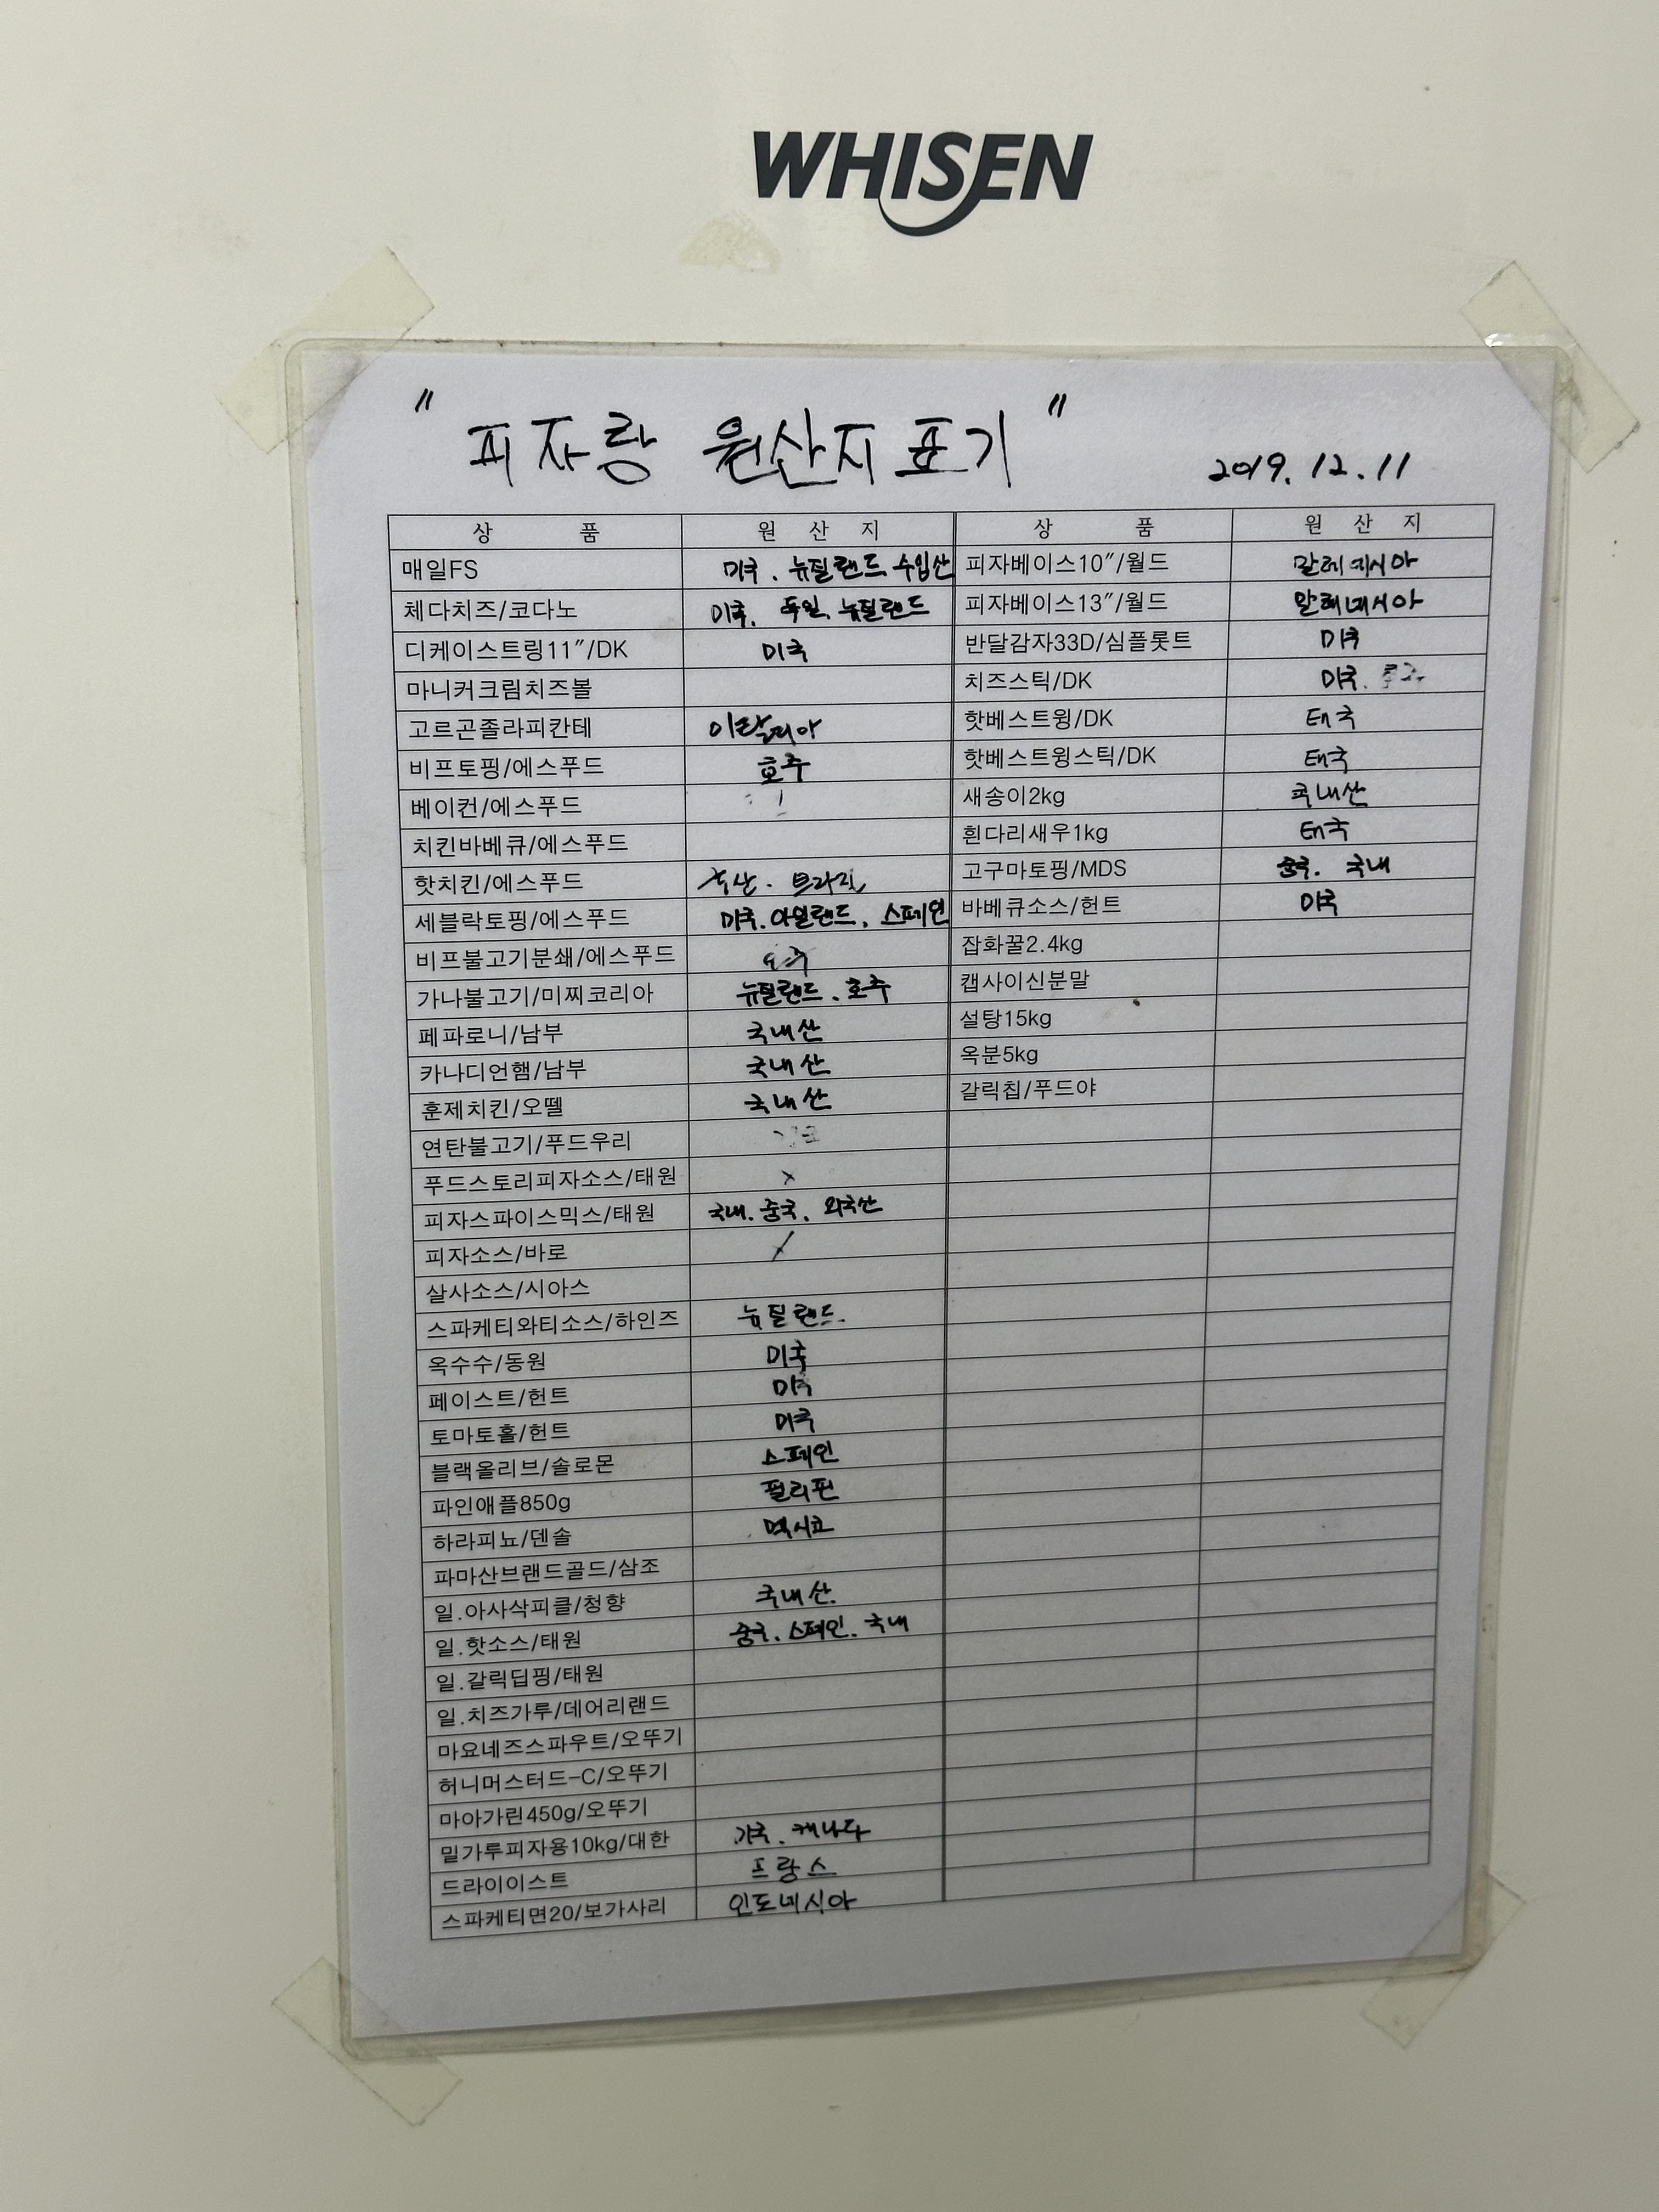 WHISEN
" 피자랑 원산지표기 "
2019. 12. 11
상 품 원 산 지 상 품 원 산 지
매일FS 미국. 뉴질랜드 수입산 피자베이스10″/월드
체다치즈/코다노 미국. 독일. 뉴질랜드 피자베이스13″/월드 말레네시아
디케이스트링11″/DK 미국 반달감자33D/심플롯트 미국
마니커크림치즈볼 치즈스틱/DK 미국.
고르곤졸라피칸테 핫베스트윙/DK 태국
비프토핑/에스푸드 호주 핫베스트윙스틱/DK 태국
베이컨/에스푸드 새송이2kg 국내산
치킨바베큐/에스푸드 흰다리새우1kg 태국
핫치킨/에스푸드 고구마토핑/MDS 중국. 국내
세블락토핑/에스푸드 미국. 아일랜드. 스페인 바베큐소스/헌트 미국
비프불고기분쇄/에스푸드 잡화꿀2.4kg
가나불고기/미찌코리아 뉴질랜드. 호주 캡사이신분말
페파로니/남부 국내산 설탕15kg
카나디언햄/남부 국내산 옥분5kg
훈제치킨/오뗄 국내산 갈릭칩/푸드야
연탄불고기/푸드우리
푸드스토리피자소스/태원
피자스파이스믹스/태원 국내. 중국. 외국산
피자소스/바로
살사소스/시아스
스파케티와티소스/하인즈 뉴질랜드.
옥수수/동원 미국
페이스트/헌트 미국
토마토홀/헌트 미국
블랙올리브/솔로몬 스페인
파인애플850g 필리핀
하라피뇨/덴솔 멕시코
파마산브랜드골드/삼조
일.아사삭피클/청향 국내산.
일.핫소스/태원 중국. 스페인. 국내
일.갈릭딥핑/태원
일.치즈가루/데어리랜드
마요네즈스파우트/오뚜기
허니머스터드-C/오뚜기
마아가린450g/오뚜기
밀가루피자용10kg/대한 캐나다
드라이이스트 프랑스
스파케티면20/보가사리 인도네시아